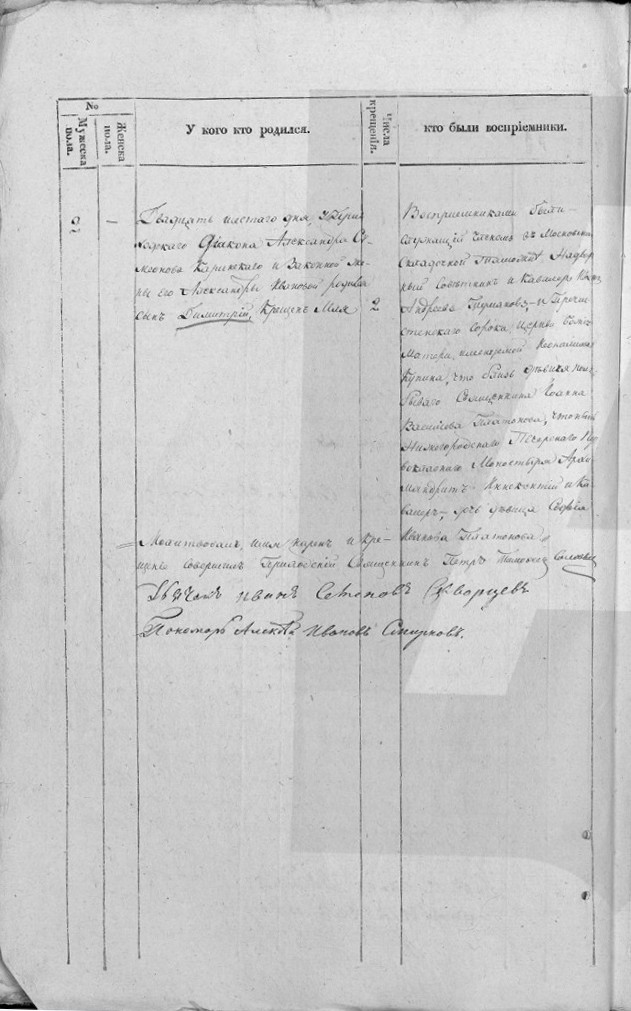 No
Мужеска пола.
Женска пола.
У кого кто родился.
Числа крещенія.
кто были воспріемники.
2
—
Двадцать шестаго дня, у
Діакона Александра Си-
меонова Каринскаго и Законной Же-
ны его Александры Ивановой родился
сынъ Димитрій, Крещенъ Мая
2
Воспріемниками были
служащій членомъ въ Московской
Складочной Таможнѣ Надвор-
ный Совѣтникъ и Кавалеръ
Андреевъ Тумановъ, и Пречи-
стенскаго Сорока Церкви Божіей
Матери, именуемой Неопалимая
Купина, что близь Дѣвичя поля
бывшаго Священника Іоанна
Васильева Платонова, что нынѣ
Нижегородскаго Печерскаго
Монастыря Архи-
мандритъ Иннокентій и Ка-
валеръ, дочь дѣвица Софія
Иванова Платонова
Молитвовалъ, имя нарекъ и Кре-
щеніе совершилъ Священникъ Петръ
Дьячокъ Иванъ Семеновъ Скворцевъ
Пономарь Алексѣй Ивановъ Смирновъ.